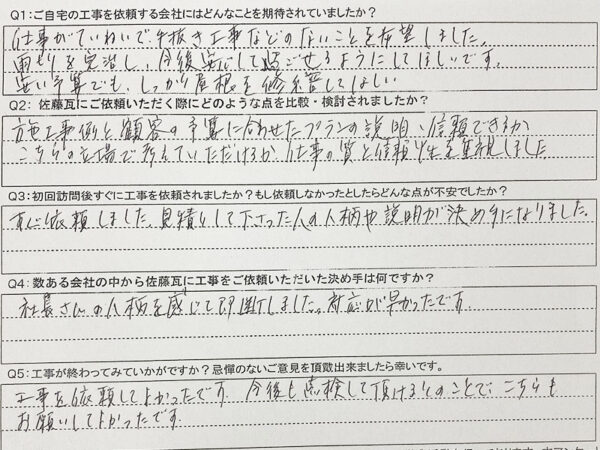 Q1:ご自宅の工事を依頼する会社にはどんなことを期待されていましたか?
仕事がていねいで、手抜き工事などのないことを希望しました。
雨もりを完治し、今後安心して過ごせるようにしてほしいです。
安い予算でも、しっかり屋根を修繕してほしい
Q2:佐藤瓦にご依頼いただく際にどのような点を比較・検討されましたか?
施工事例と顧客の予算に合わせたプランの説明、信頼できるか
こちらの立場で考えていただけるか、仕事の質と信頼性を重視しました
Q3:初回訪問後すぐに工事を依頼されましたか?もし依頼しなかったとしたらどんな点が不安でしたか?
すぐ依頼しました。見積りして下さった人の人柄や説明が決め手になりました。
Q4:数ある会社の中から佐藤瓦に工事をご依頼いただいた決め手は何ですか?
社長さんの人柄を感じて即断しました。対応が早かったです。
Q5:工事が終わってみていかがですか?忌憚のないご意見を頂戴出来ましたら幸いです。
工事を依頼してよかったです。今後も点検して頂けるとのことで、こちらも
お願いしてよかったです